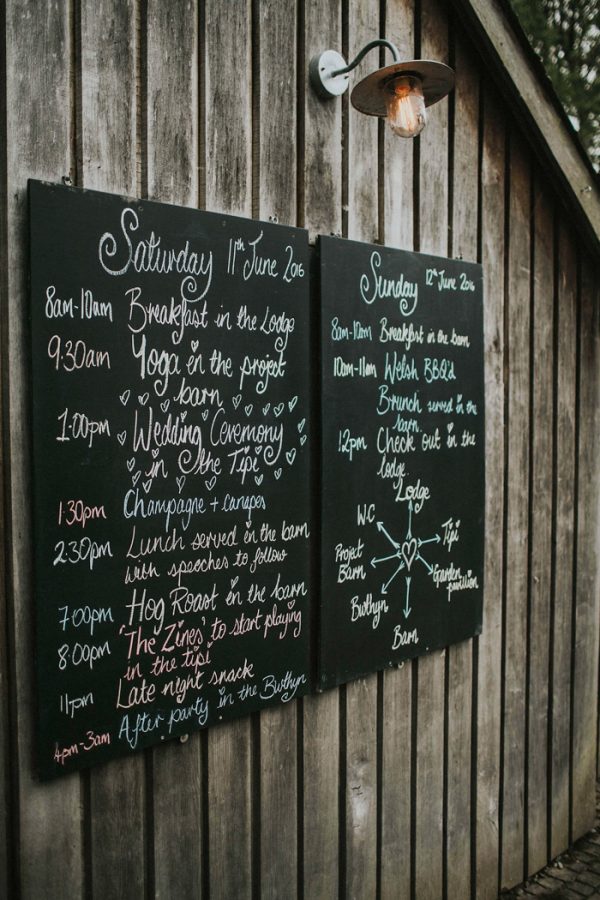 Saturday 11th June 2016
8am-10am Breakfast in the Lodge
9.30am Yoga in the project
barn
1:00pm Wedding Ceremony
in the Tipi
1:30pm Champagne + canapes
2:30pm Lunch served in the barn
with speeches to follow
7:00pm Hog Roast in the barn
8:00pm 'The Zines' to start playing
in the tipi
11pm Late night snack
4pm-3am After party in the Bwthyn
Sunday 12th June 2016
8am-10am Breakfast in the barn
10am-11am Welsh BBQ'd
Brunch served in the
barn
12pm Check out in the
lodge
Lodge
WC
Tipi
Project
Barn
Garden
pavilion
Bwthyn
Barn